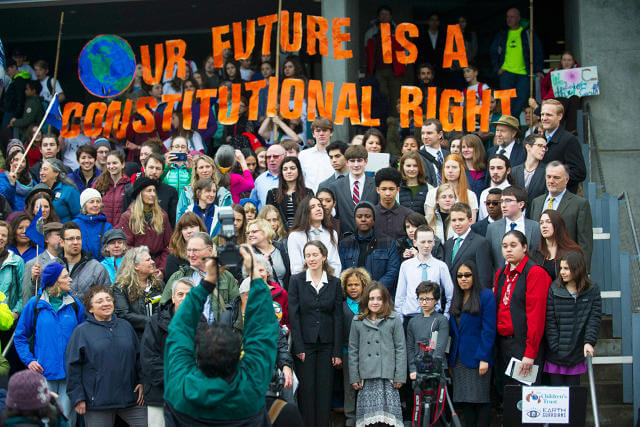 OUR FUTURE IS A
CONSTITUTIONAL RIGHT
Children's
Trust
EARTH
GUARDIANS